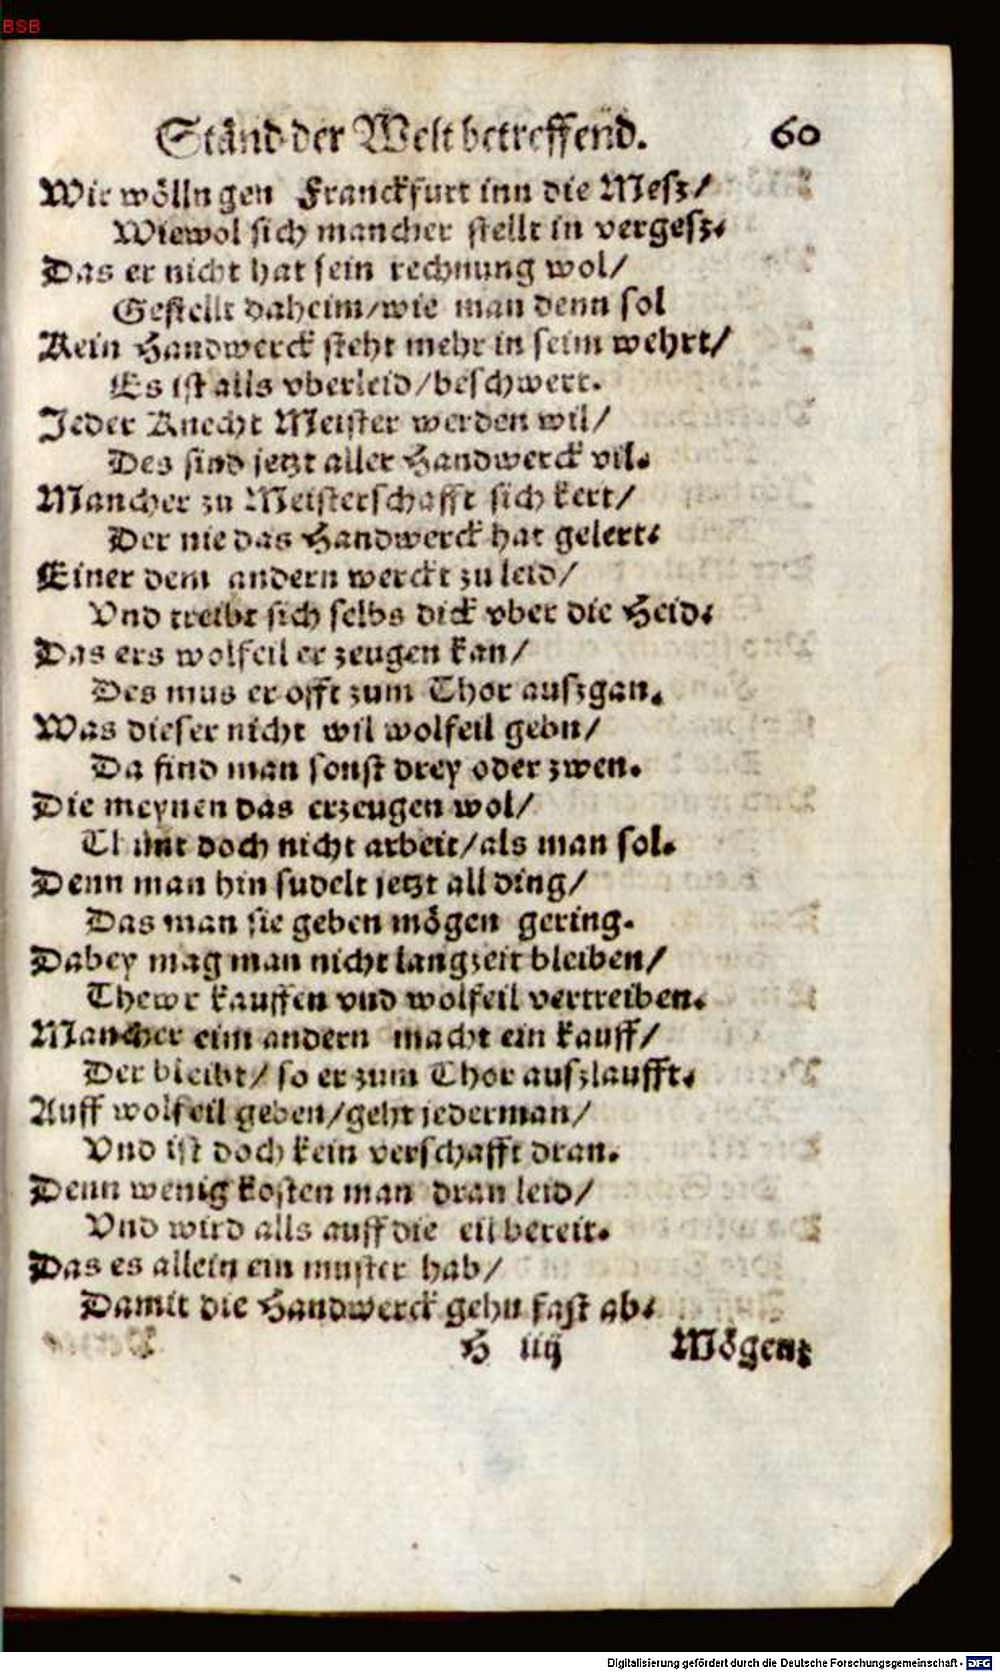 BSB
Ständ der Welt betreffend. 60
Wir wölln gen Franckfurt inn die Mesz/
Wiewol sich mancher stellt in vergesz.
Das er nicht hat sein rechnung wol/
Gestellt daheim/wie man denn sol
Kein Handwerck steht mehr in seim wehrt/
Es ist alls vberleid/beschwert.
Jeder Knecht Meister werden wil/
Des sind jetzt aller Handwerck vil.
Mancher zu Meisterschafft sich kert/
Der nie das Handwerck hat gelert.
Einer dem andern werckt zu leid/
Vnd treibt sich selbs dick vber die Heid.
Das ers wolfeil er zeugen kan/
Des mus er offt zum Thor auszgan.
Was dieser nicht wil wolfeil gebn/
Da find man sonst drey oder zwen.
Die meynen das erzeugen wol/
Thunt doch nicht arbeit/als man sol.
Denn man hin sudelt jetzt all ding/
Das man sie geben mögen gering.
Dabey mag man nicht langzeit bleiben/
Thewr kauffen vnd wolfeil vertreiben.
Mancher eim andern macht ein kauff/
Der bleibt/ so er zum Thor auszlaufft.
Auff wolfeil geben/geht jederman/
Vnd ist doch kein verschafft dran.
Denn wenig kosten man dran leid/
Vnd wird alls auff die eil bereit.
Das es allein ein muster hab/
Damit die Handwerck gehn fast ab.
H iiij Mögen:
Digitalisierung gefördert durch die Deutsche Forschungsgemeinschaft - DFG